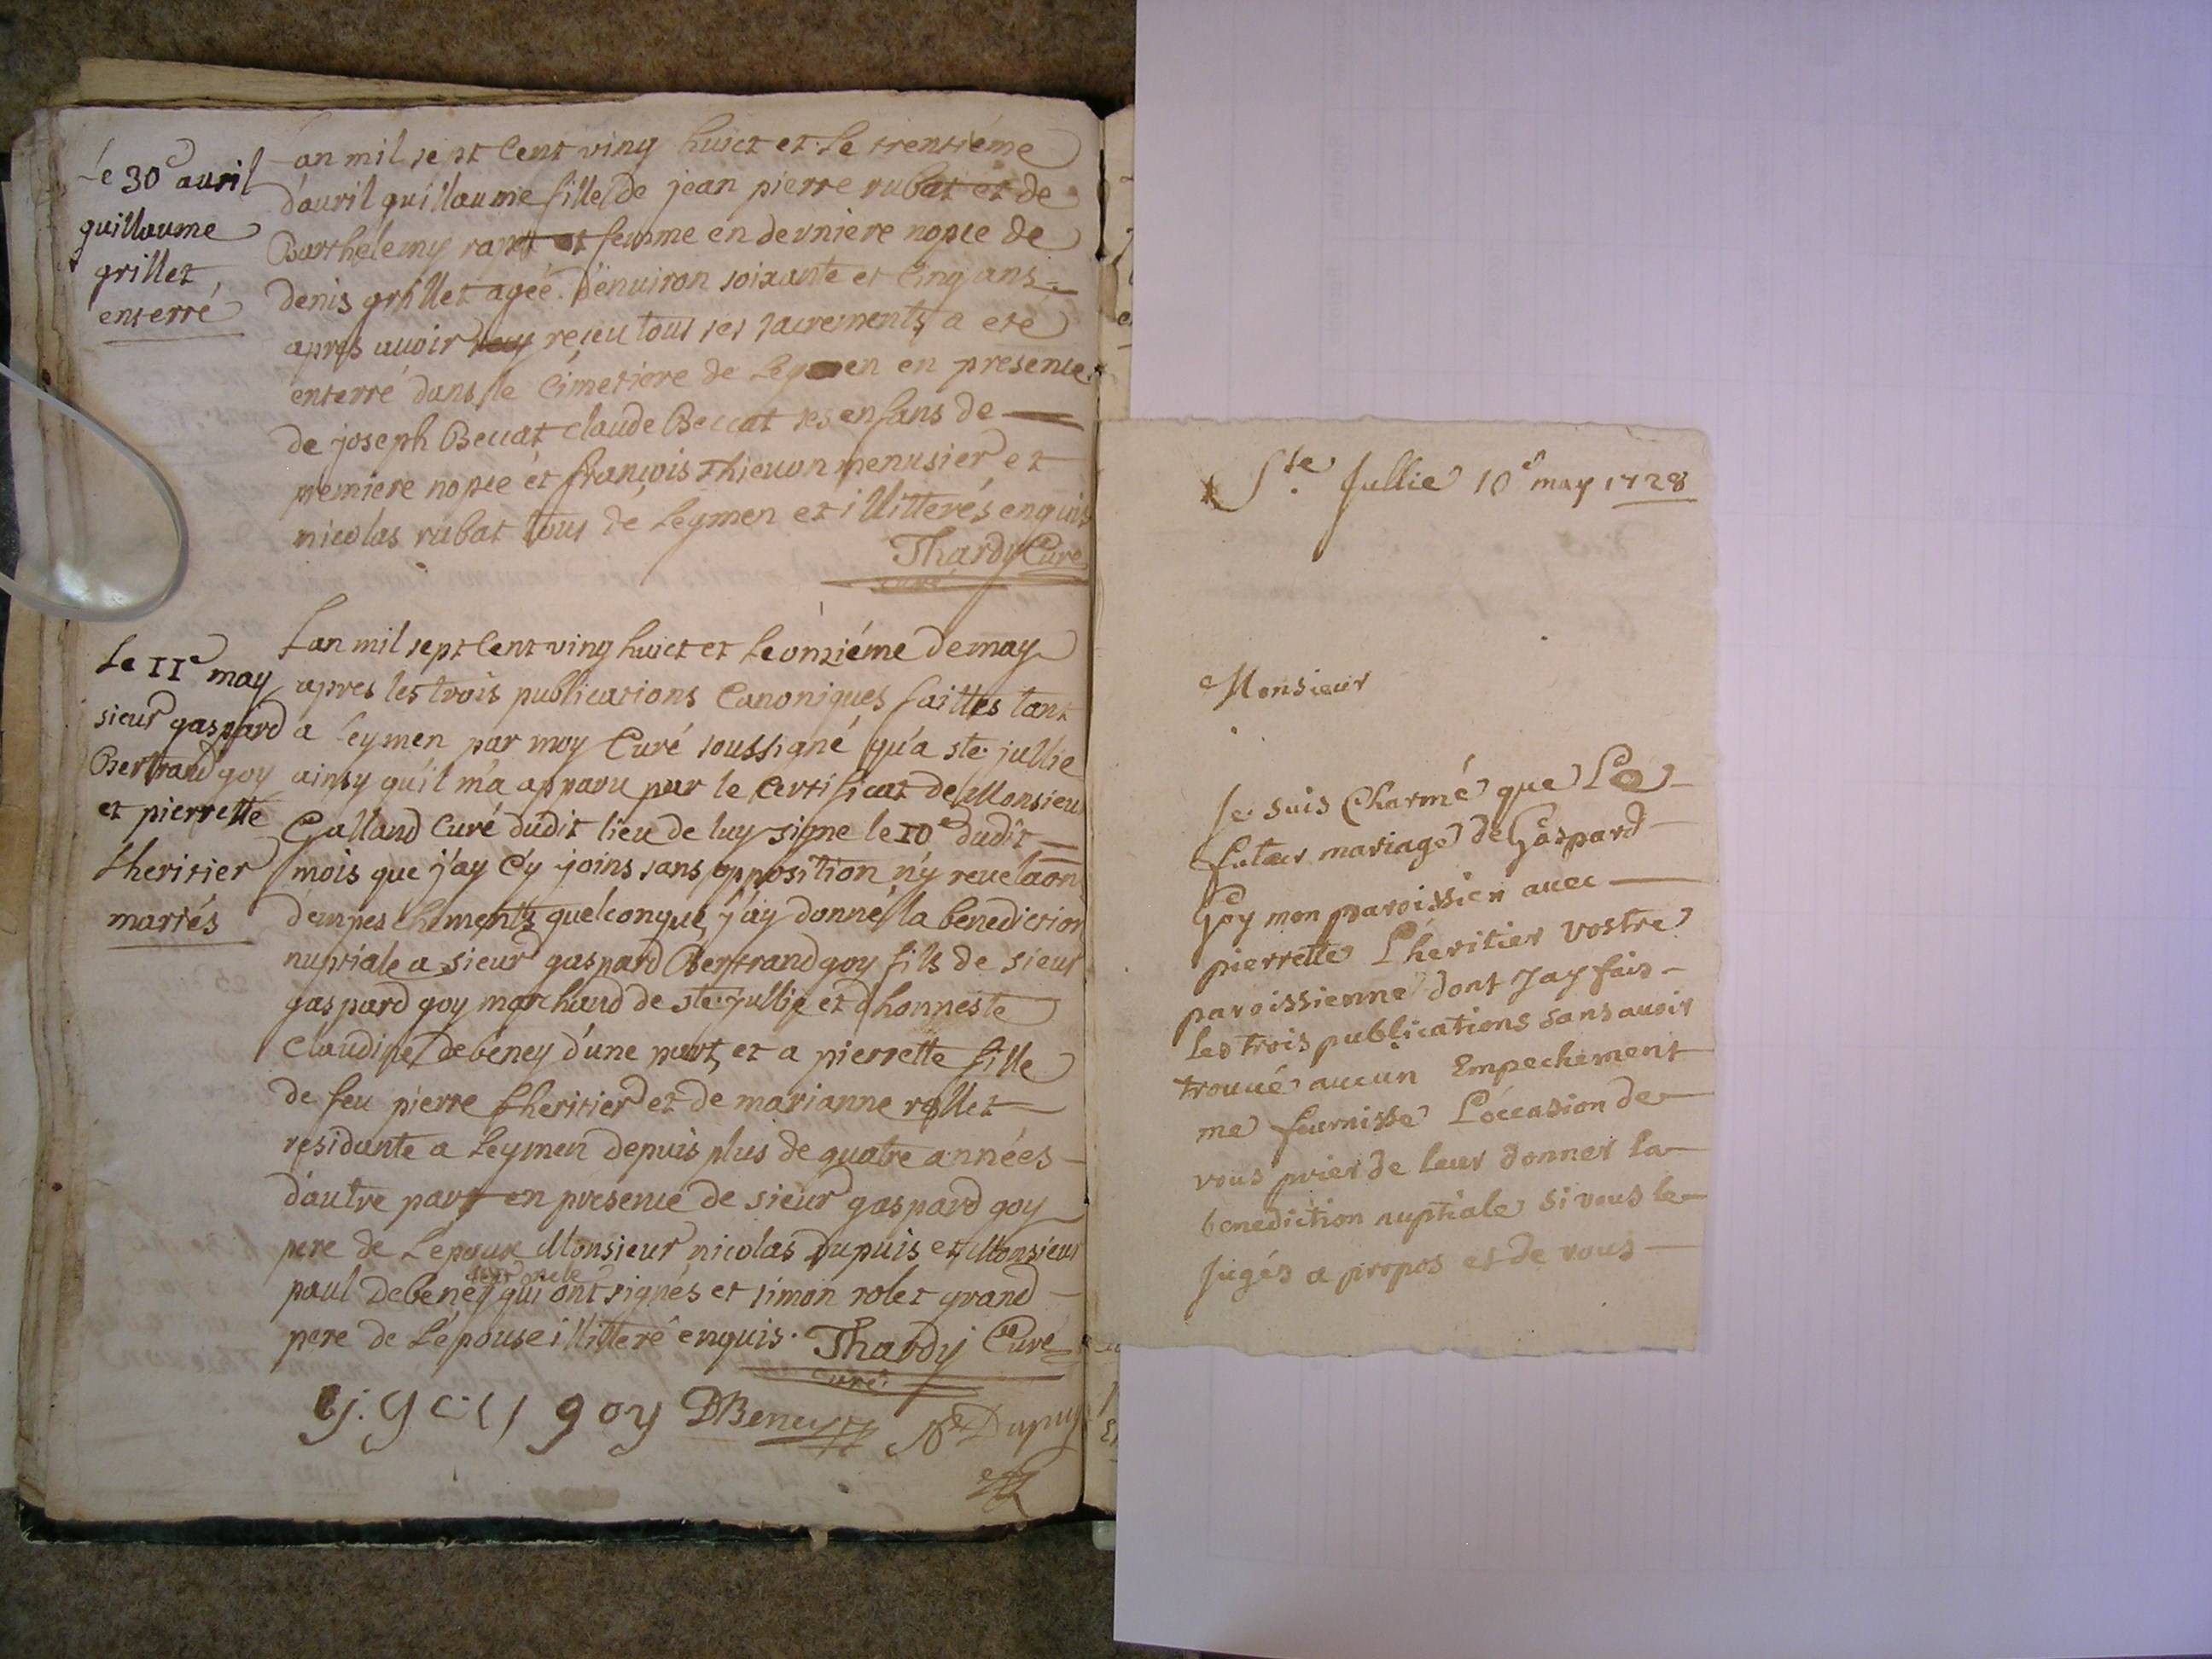 Le 30e auril
guillaume
grillet
enterré
an mil sept Cent ving huict et Le trentiéme
d'auril guillaume fille de jean pierre rubat et de
Barthelemy et femme en derniere nopce de
denis grillet agée d'enuiron soixante et Cinq ans
apres auoir reçeu tous ses sacrements a eté
enterré dans le Cimetiere de Leymen en presence
de joseph Beccat Claude Beccat ses enfans de
premiere nopce et françois Thieuon menusier et
nicolas rubat tous de Leymen et illitterés enquis
Thardy Curé
curé
Le 11e may
sieur gaspard
Bertrand goy
et pierrette
Lheritier
mariés
Lan mil sept Cent ving huict et Le onziéme de may
apres les trois publications Canoniques faittes tant
a Leymen par moy Curé soussigné qu'a ste. jullie
ainsy qu'il m'a apparu par le Certificat de Monsieu
Galland Curé dudit lieu de luy signe le 10e dudit
mois que j'ay C'y joins sans opposition n'y reuelaõn
d'empeschements quelconque, j'ay donné la benediction
nuptiale a sieur gaspard Bertrand goy fils de sieur
gaspard goy marchand de ste. jullie et d'honneste
Claudine Debeney d'une part, et a pierrette fille
de feu pierre Lheritier et de marianne rollet
residante a Leymen depuis plus de quatre années
d'autre part en presence de sieur gaspard goy
pere de Lepoux Monsieur nicolas Dupuis et Monsieur
son oncle
paul Debeney qui ont signés et simon rolet grand
pere de Lépouse illitteré enquis. Thardy Curé
curé
goy DBeney Dupuy
Ste Jullie 10e may 1728
Monsieur
Je suis Charmé que Le
futur mariage de Gaspard
Goy mon paroissien auec
pierrette L'heritier vostre
paroissienne dont Jay fais
les trois publications sans auoir
trouué aucun Empechement
me fournisse L'occasion de
vous prier de leur donner la
benediction nuptiale si vous le
Jugés a propos et de vous